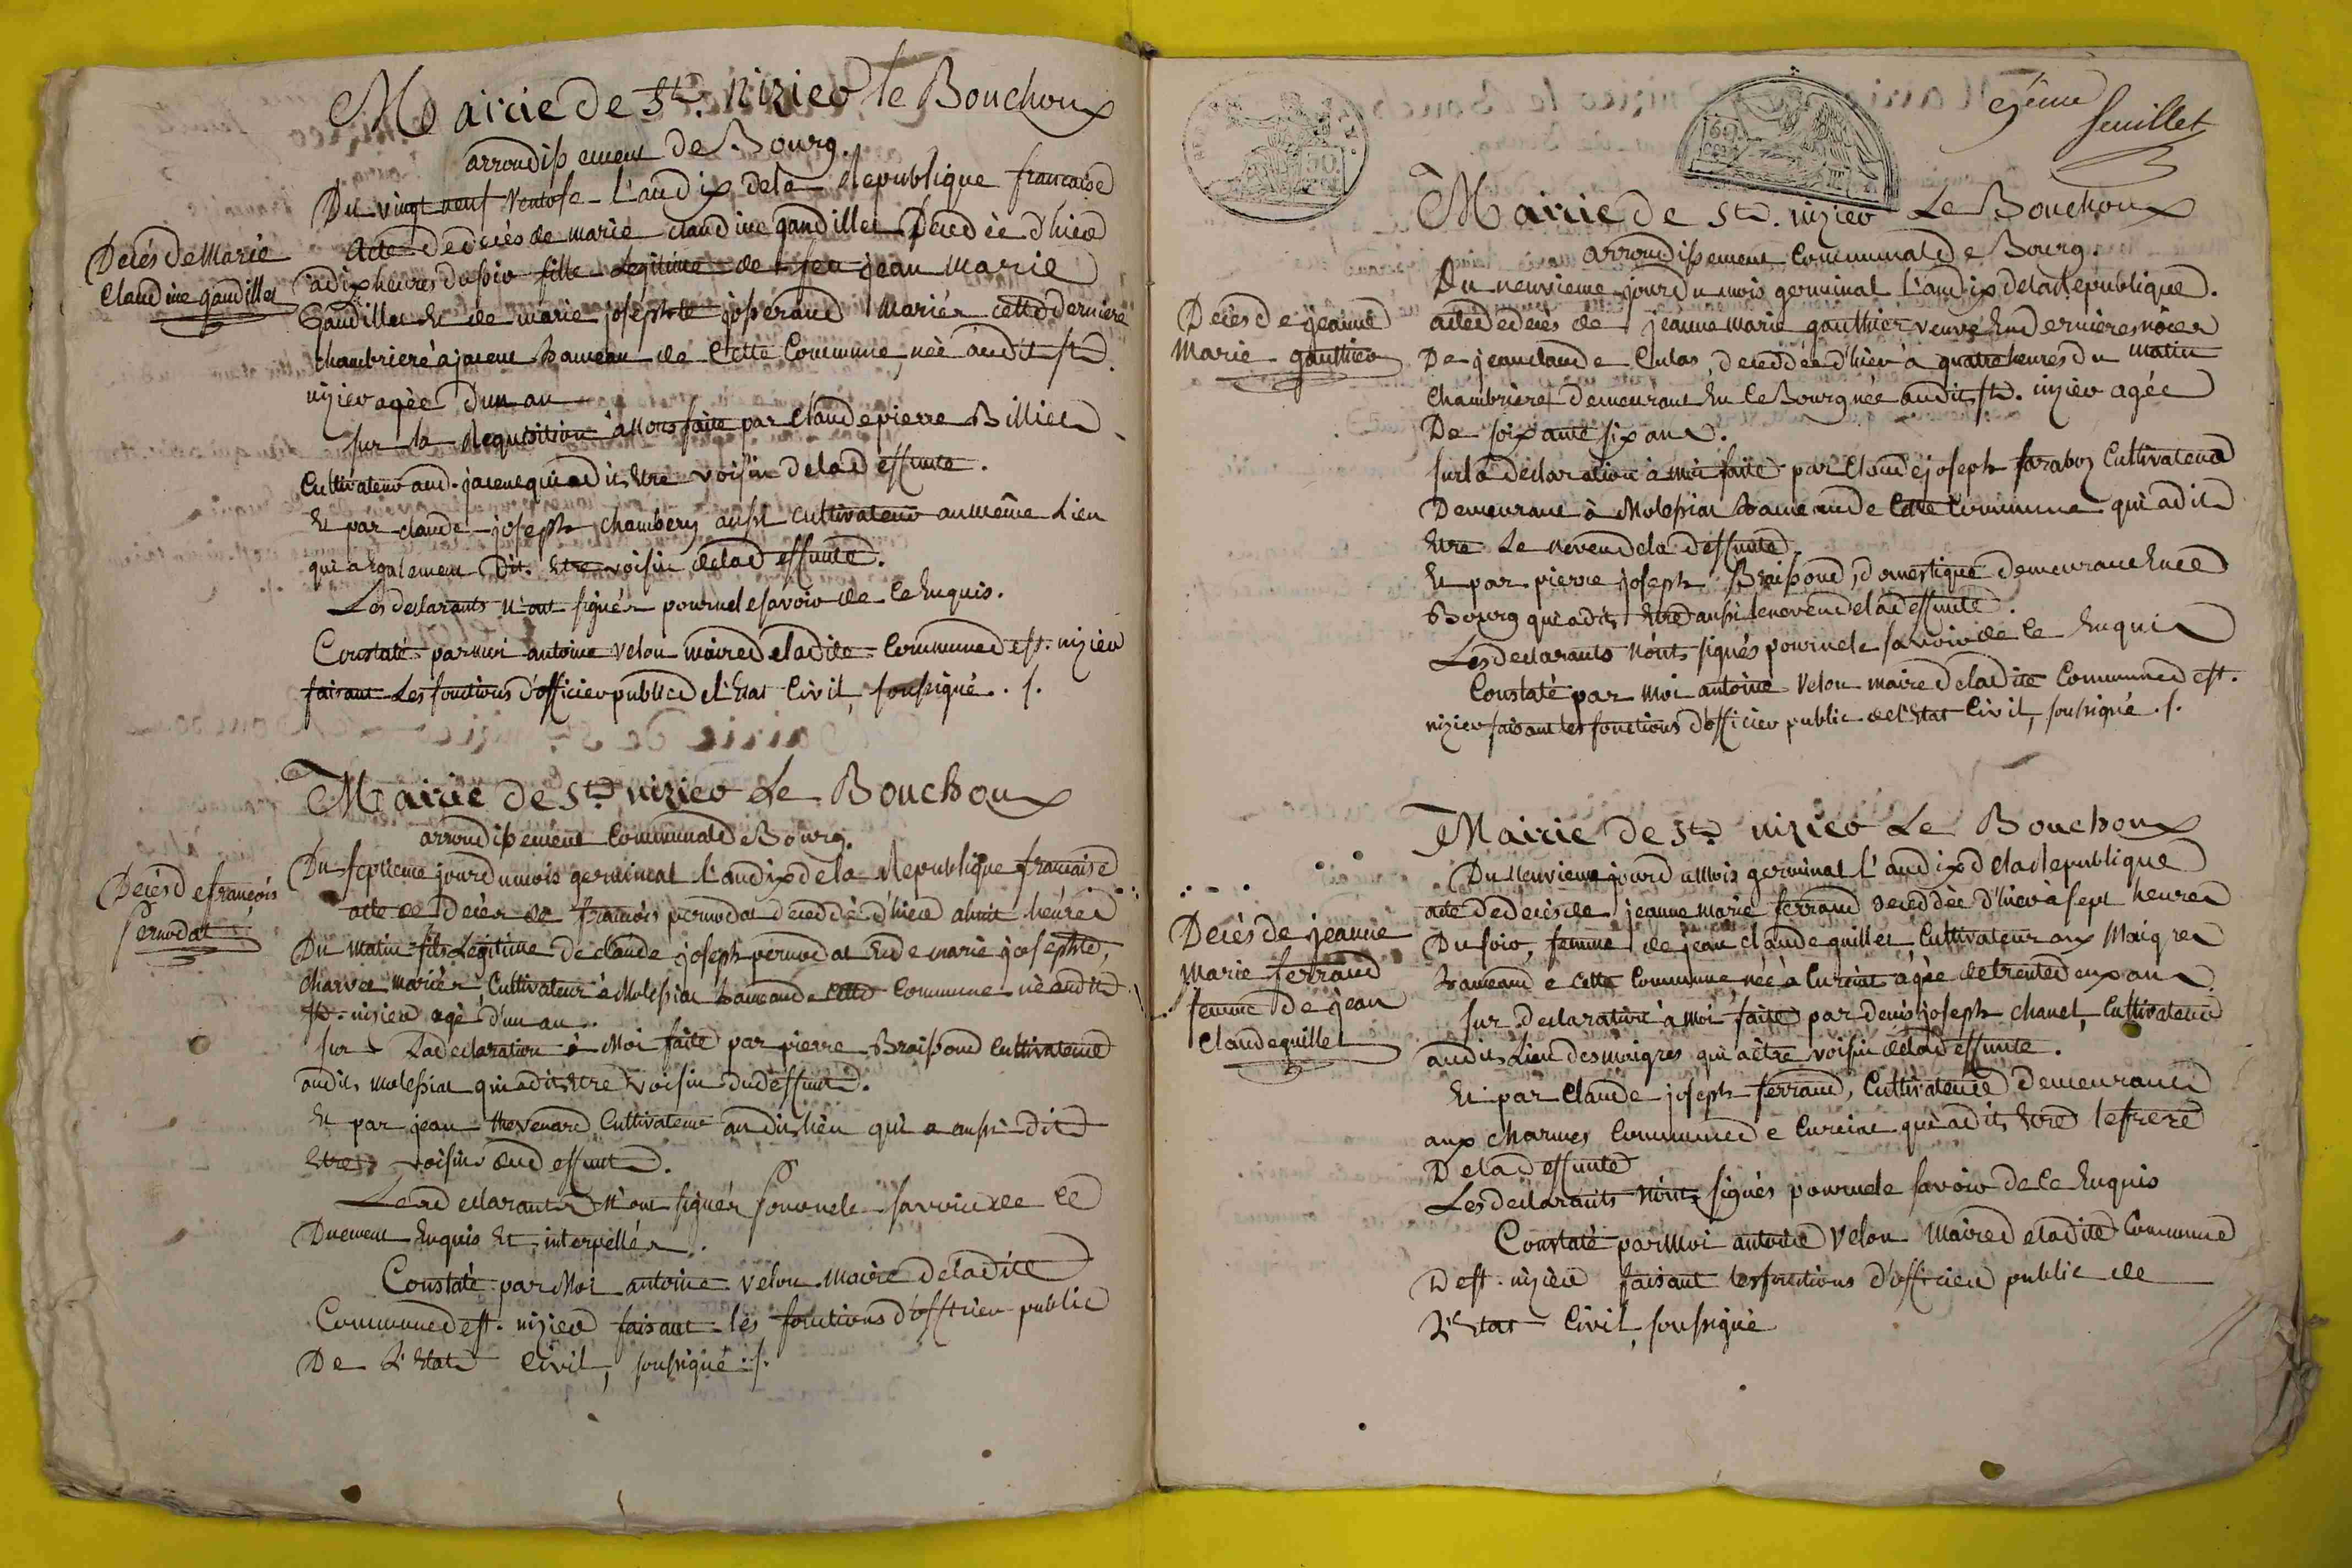 Mairie de St. nizier le Bouchoux
arrondissement de Bourg.
Du vingt neuf Ventose l'an dix de la Republique francaise
Decés de Marie
Claudine gaudillet
acte de decés de marie claudine gaudillet Decedèe d'hier
à dix heures du soir fille Legitime de feu jean marie
Gaudillet Et de marie josephte josserand Mariés cette derniere
chambriere a jaseur hameau de Cette Commune, née audit St.
nizier agèe d'un an
sur la Requisition à Nous faite par Claude pierre Billiet
Cultivateur aud. jaseur qui a dit Etre voisin de la deffunte.
Et par claude joseph chambery aussi cultivateur au même Lieu
qui a Egalement Dit Etre voisin de la deffunte.
Les declarants N'ont signés pour ne le savoir de ce Enquis.
Constaté par moi antoine velon maire de ladite Commune de st. nizier
faisant Les fonctions d'officier public de l'Etat Civil, soussigné . /.
Mairie de St. nizier Le Bouchoux
arrondissement Communal de Bourg.
Du septieme jour du mois germinal l'an dix de la Republique francaise
Decés de francois
Pernodat
acte de decés de francois pernodat decedé d'hier a huit heures
Du matin fils Légitime de claude joseph pernodat Et de marie josephte,
Charvet mariés Cultivateur à Molessiat hameau de cette Commune nè audit
St. nizier agè d'un an.
sur La declaration à Moi faite par pierre Braissoud Cultivateur
audit molessiat qui a dit Etre voisin du deffunt.
Et par jean thevenard Cultivateur audit lieu qui a aussi dit
Etre voisin du deffunt.
Les declarants N'ont signés pour ne le savoir de ce
Duement Enquis Et interpellés.
Constaté par Moi antoine velon Maire de ladite
Commune de st. nizier faisant les fonctions d'officier public
De L'Etat Civil, soussigné . /.
9eme
feuillet
Mairie de St. nizier Le Bouchoux
arrondissement Communal de Bourg.
Du neuvieme jour du mois germinal l'an dix de la Republique.
Decés de jeanne
Marie gauthier
acte de decés de jeanne marie gauthier veuve En dernieres nôces
De jean claude Culas, decedée d'hier à quatre heures du matin
Chambriere demeurant En ce Bourg née audit st. nizier agée
De soixante six ans.
sur la declaration à moi faite par Claude joseph faraboz Cultivateur
Demeurant à Molessiat hameau de Cette Commune qui a dit
Etre Le neveu de la deffunte.
Et par pierre joseph Braissoud, domestique demeurant En ce
Bourg qui a dit Etre aussi le neveu de la deffunte.
Les declarants N'ont signés pour ne le savoir de ce Enquis
Constaté par Moi antoine Velon maire de ladite Commune de st.
nizier faisant les fonctions d'officier public de l'Etat Civil, soussigné . /.
Mairie de St. nizier Le Bouchoux
Du Neuvieme jour du Mois germinal l'an dix de la Republique
Decés de jeanne
Marie ferrand
femme de jean
Claude guillet
acte de decés de jeanne marie ferrand decedèe d'hier à sept heures
Du soir, femme de jean claude guillet Cultivateur aux Maigres
hameau de cette Commune née à Curciat agèe de trente deux ans
sur declaration à Moi faite par denis joseph chanel, Cultivateur
audit Lieu des maigres qui a être voisin de la deffunte.
Et par Claude joseph ferrand, Cultivateur demeurant
aux charmes Commune de Curciat qui a dit Etre le frere
De la deffunte
Les declarants N'ont signés pour ne le savoir de ce Enquis
Constaté par Moi antoine Velon Maire de ladite Commune
De st. nizier faisant les fonctions d'officier public de
L'Etat Civil, soussigné